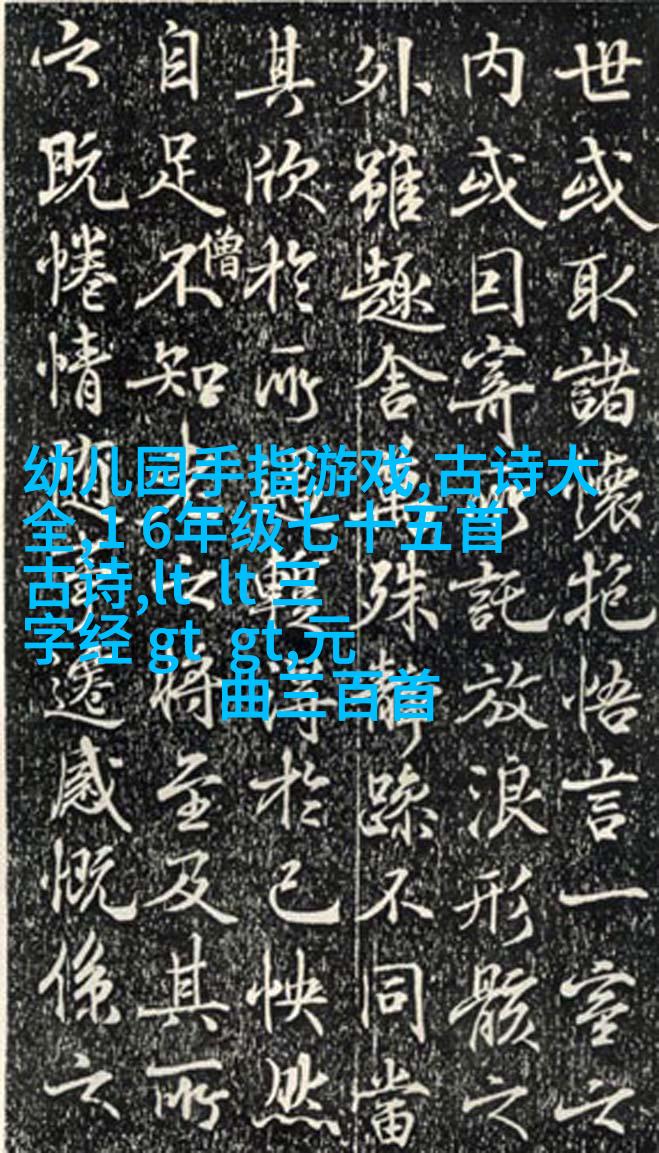 世或取諸懷抱悟言一室之
内或因寄所託放浪形骸之
外雖趣舍萬殊靜躁不同當
其欣於所遇暫得於己怏然
自足不知老之將至及其所
僧
之既惓情随事遷感慨係之
幼儿园手指游戏,古诗大
全,1 6年级七十五首
古诗,lt lt 三
字经 gt gt,元
曲三百首